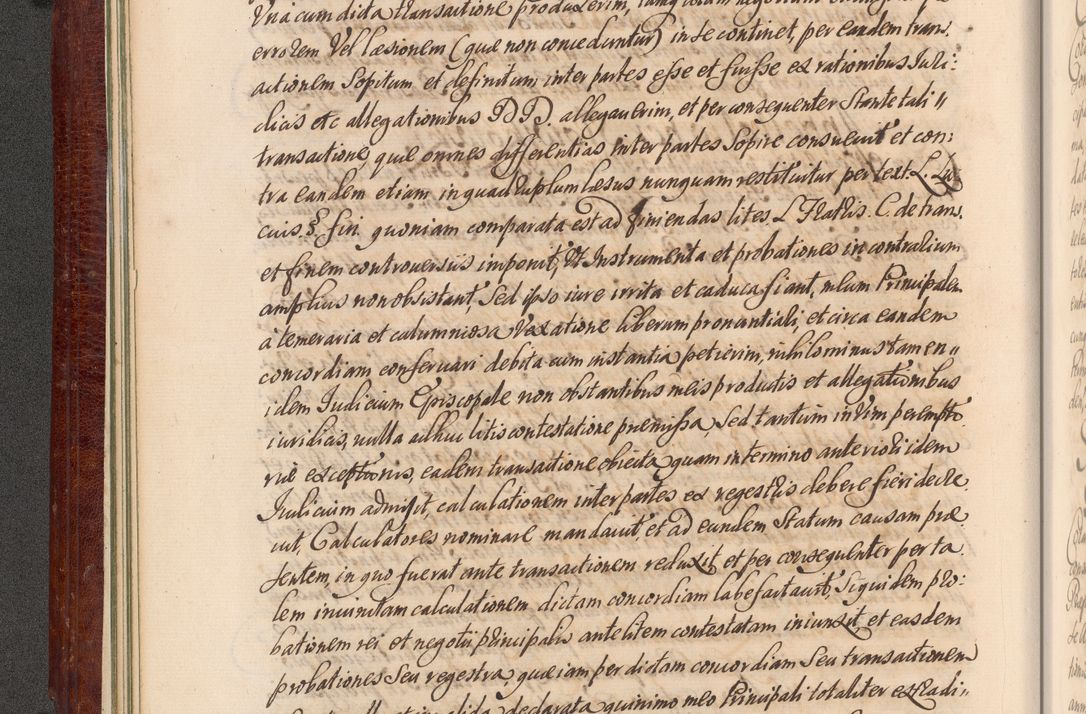 Vna cum dicta transactione produxerim,
errorem Vel læsionem (quæ non conceduntur) in se continet, per eandem trans,
actionem Sopitum et definitum inter partes esse et fuisse ex rationibus Juri:
dicis etc allegationibus DD. allegauerim, et per consequenter Stante tali "
transactione, quæ omnes differentias inter partes Sopire consueuit et con:
tra eandem etiam in quadruplum læsus nunquam restituitur per text. L. Lu
cius. §. fin. quoniam comparata est ad finiendas lites L. Fratris. C. de trans.
et finem controuersiis imponit, Vt Instrumenta et probationes in contrarium
amplius non obsistant, Sed ipso iure irrita et caduca fiant, meum Principalem
à temeraria et calumniosa Vexatione liberum pronuntiari, et circa eandem
concordiam conseruari debita cum instantia petierim, nihilominus tamen "
idem Judicium Episcopale non obstantibus meis productis et allegationibus
iuridicis, nulla adhuc litis contestatione præmissa, Sed tantum in Vim perempto
riæ exceptionis, eadem transactione obiecta, quam in termino anteriori idem
Judicium admisit, calculationem inter partes ex regestris debere fieri decre
uit, Calculatores nominare mandauit, et ad eundem Statum causam præ
sentem, in quo fuerat ante transactionem reduxit et per consequenter per ta
lem iniunctam calculationem dictam concordiam labefactauit, Siquidem pro:
bationem rei et negotii principalis ante litem contestatam iniunxit et easdem
probationes Seu regestra quæ iam per dictam concordiam Seu transactionem
declarata quinimo meo Principali totaliter extradi"